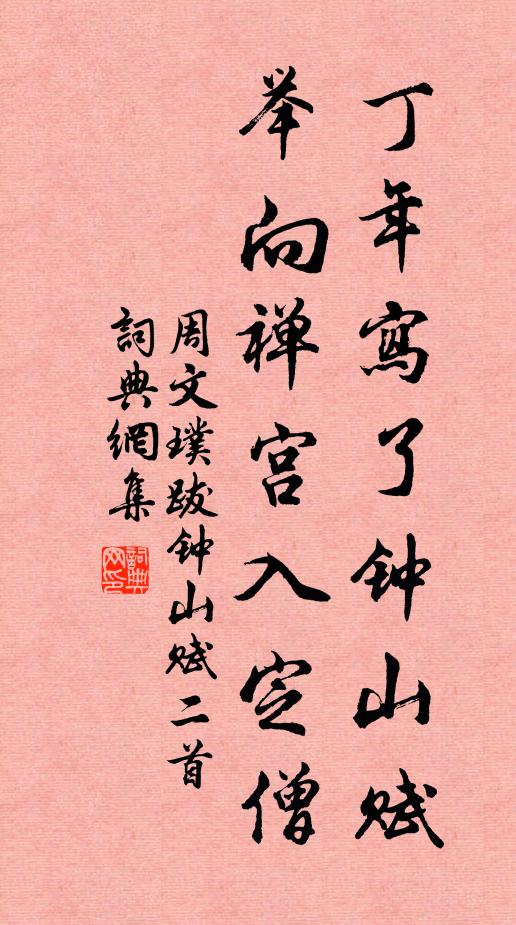 丁年寫了钟山赋
举向禅宫入定僧
周文璞跋钟山赋二首
詞典網集
詞典网印